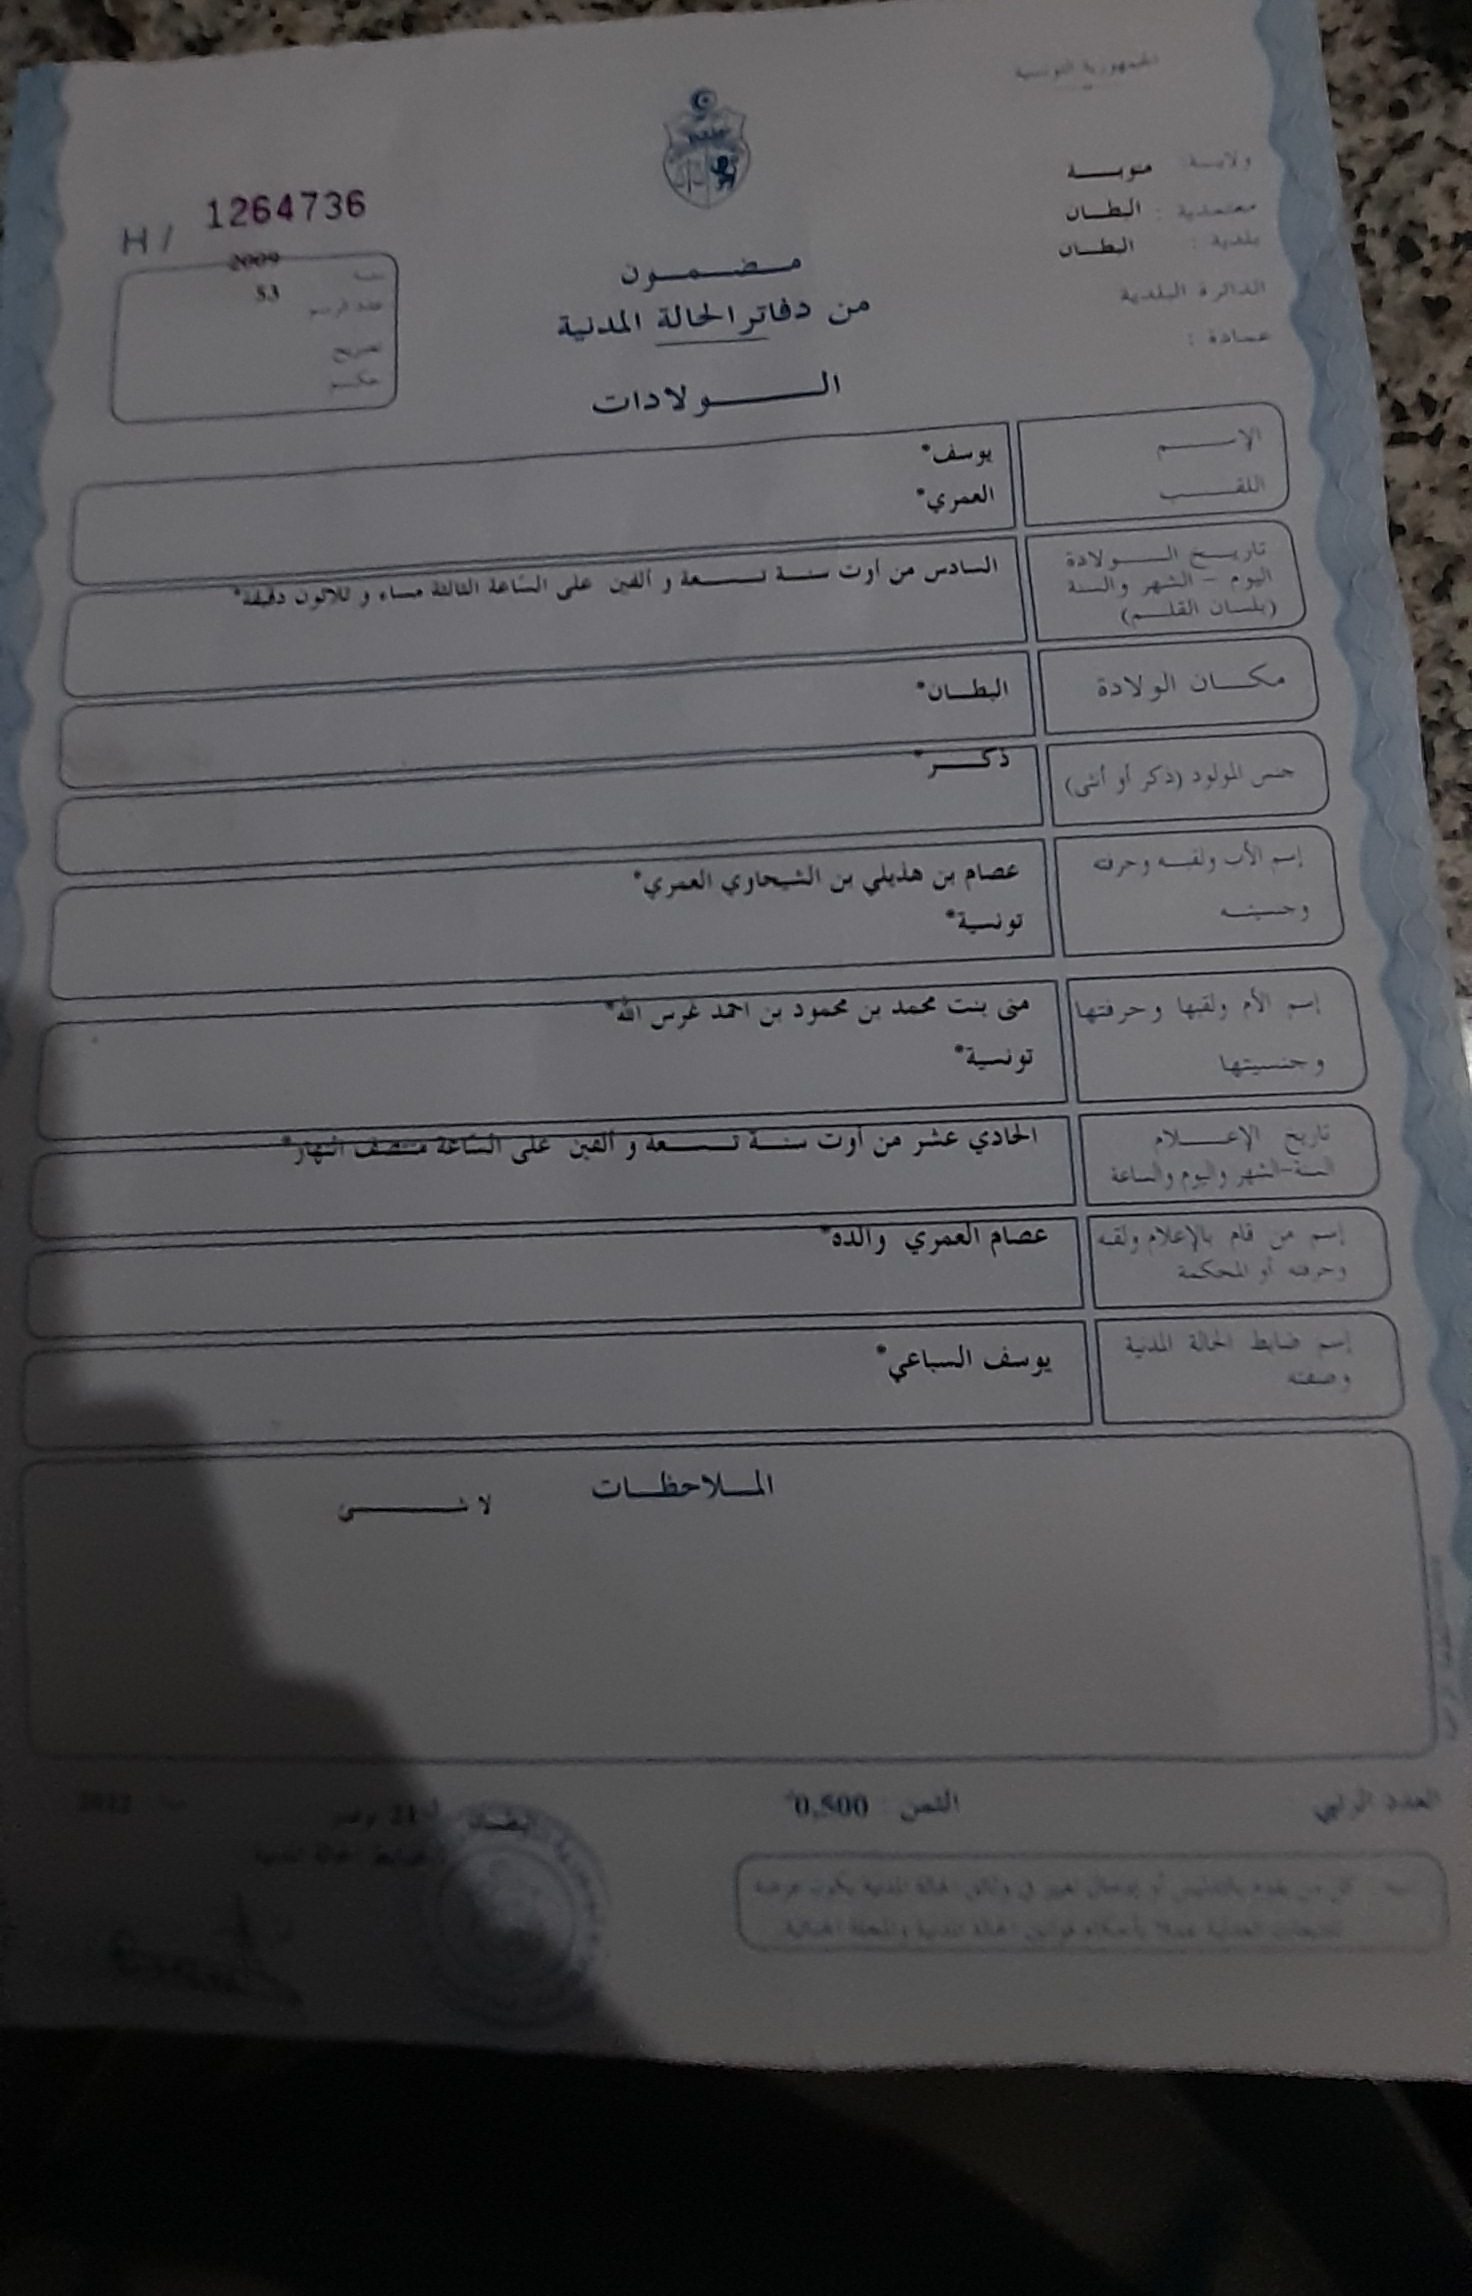 الجمهورية التونسية
ولاية: منوبة
معتمدية: البطان
بلدية: البطان
الدائرة البلدية
عمادة:
H / 1264736
سنة 2009
عدد الرسم 53
تصريح
حكم
مضمون
من دفاتر الحالة المدنية
الولادات
الاسم يوسف*
اللقب العمري*
تاريخ الولادة
اليوم - الشهر والسنة
(بلسان القلم)
السادس من أوت سنة تسعة و ألفين على الساعة الثالثة مساء و ثلاثون دقيقة*
مكان الولادة البطان*
جنس المولود (ذكر أو أنثى) ذكر*
إسم الأب ولقبه وحرفته عصام بن هذيلي بن الشيحاوي العمري*
وجنسيته تونسية*
إسم الأم ولقبها وحرفتها منى بنت محمد بن محمود بن احمد غرس الله*
وجنسيتها تونسية*
تاريخ الإعلام
السنة-الشهر واليوم والساعة
الحادي عشر من أوت سنة تسعة و ألفين على الساعة منتصف النهار*
إسم من قام بالإعلام ولقبه
وحرفته أو المحكمة
عصام العمري والده*
إسم ضابط الحالة المدنية
وصفته
يوسف السباعي*
الملاحظات
لا شئ
العدد الرتبي
الثمن : 0,500
البطان في 21 نوفمبر سنة 2022
ضابط الحالة المدنية